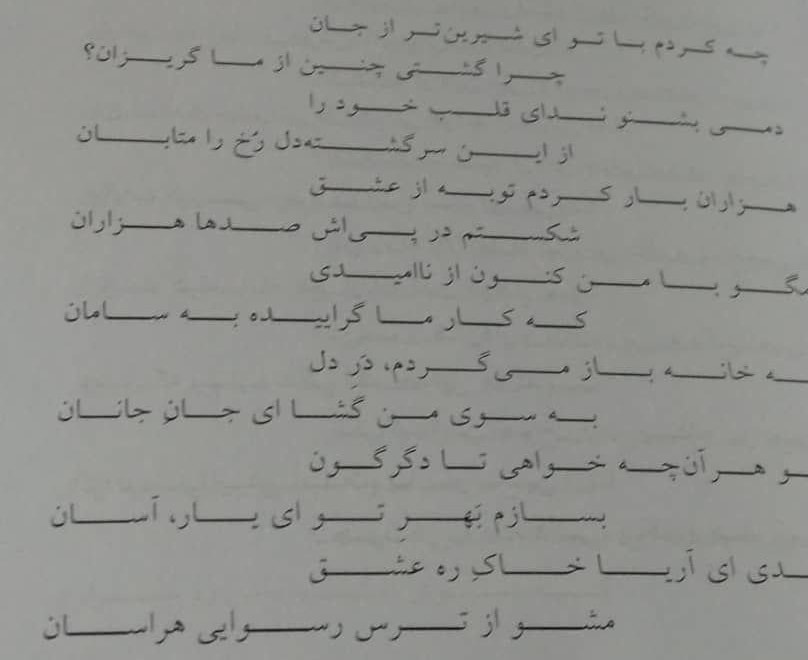 چه کردم با تو ای شیرین‌تر از جان
چرا گشتی چنین از ما گریزان؟
دمی بشنو ندای قلب خود را
از این سرگشته‌دل رُخ را متابان
هزاران بار کردم توبه از عشق
شکستم در پی‌اش صدها هزاران
مگو با من کنون از ناامیدی
که کار ما گراییده به سامان
خانه باز می‌گردم، دَرِ دل
به سوی من گشا ای جانِ جانان
هرآن‌چه خواهی تا دگرگون
بسازم بَهرِ تو ای یار، آسان
ای آریا خاکِ ره عشق
مشو از ترس رسوایی هراسان